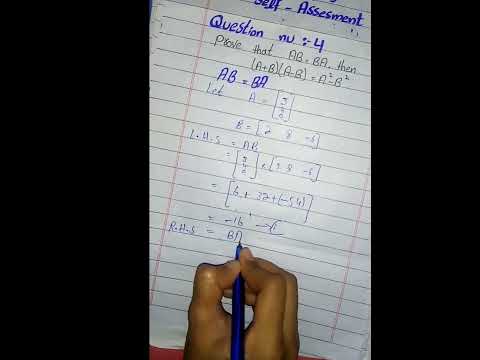 Self-Assesment
Question nu :- 4
Prove that AB = BA, then
(A+B)(A-B) = A²-B²
AB = BA
Let A = [3
B = [2 8 -6]
L.H.S = AB
= [6 + 32 + (-54)]
= -16
R.H.S = BA